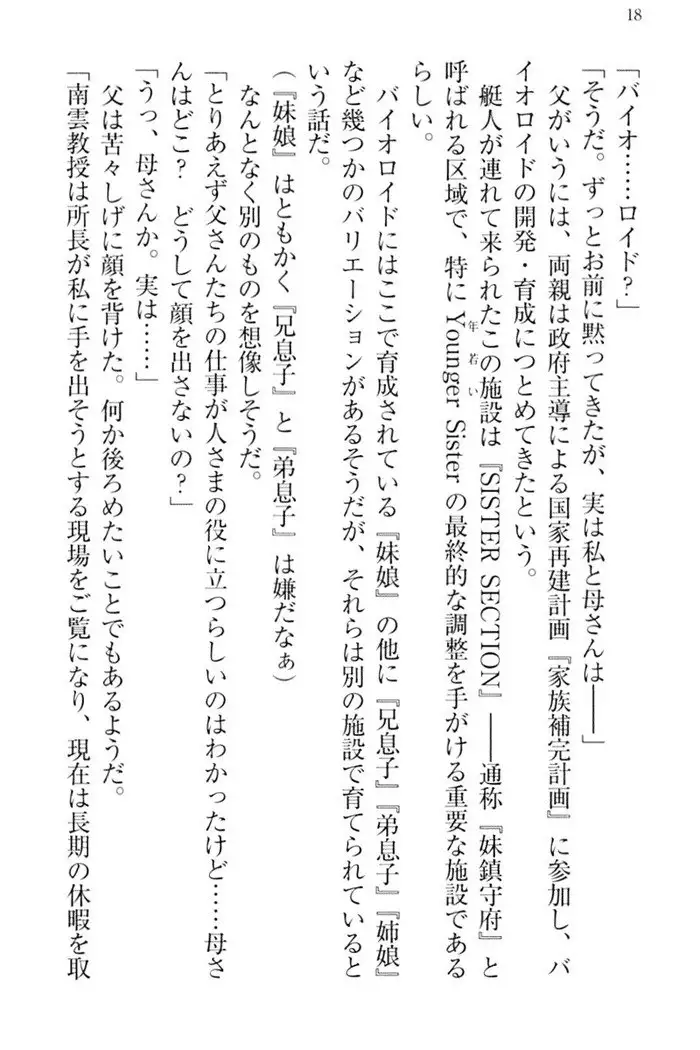 18
「バイオ……ロイド？」
「そうだ。ずっとお前に黙ってきたが、実は私と母さんは――」
父がいうには、両親は政府主導による国家再建計画『家族補完計画』に参加し、バ
イオロイドの開発・育成につとめてきたという。
艇人が連れて来られたこの施設は『SISTER SECTION』――通称『妹鎮守府』と
呼ばれる区域で、特に Younger Sister の最終的な調整を手がける重要な施設である
年若い
らしい。
バイオロイドにはここで育成されている『妹娘』の他に『兄息子』『弟息子』『姉娘』
など幾つかのバリエーションがあるそうだが、それらは別の施設で育てられていると
いう話だ。
（『妹娘』はともかく『兄息子』と『弟息子』は嫌だなぁ）
なんとなく別のものを想像しそうだ。
「とりあえず父さんたちの仕事が人さまの役に立つらしいのはわかったけど……母さ
んはどこ？　どうして顔を出さないの？」
「うっ、母さんか。実は……」
父は苦々しげに顔を背けた。何か後ろめたいことでもあるようだ。
「南雲教授は所長が私に手を出そうとする現場をご覧になり、現在は長期の休暇を取